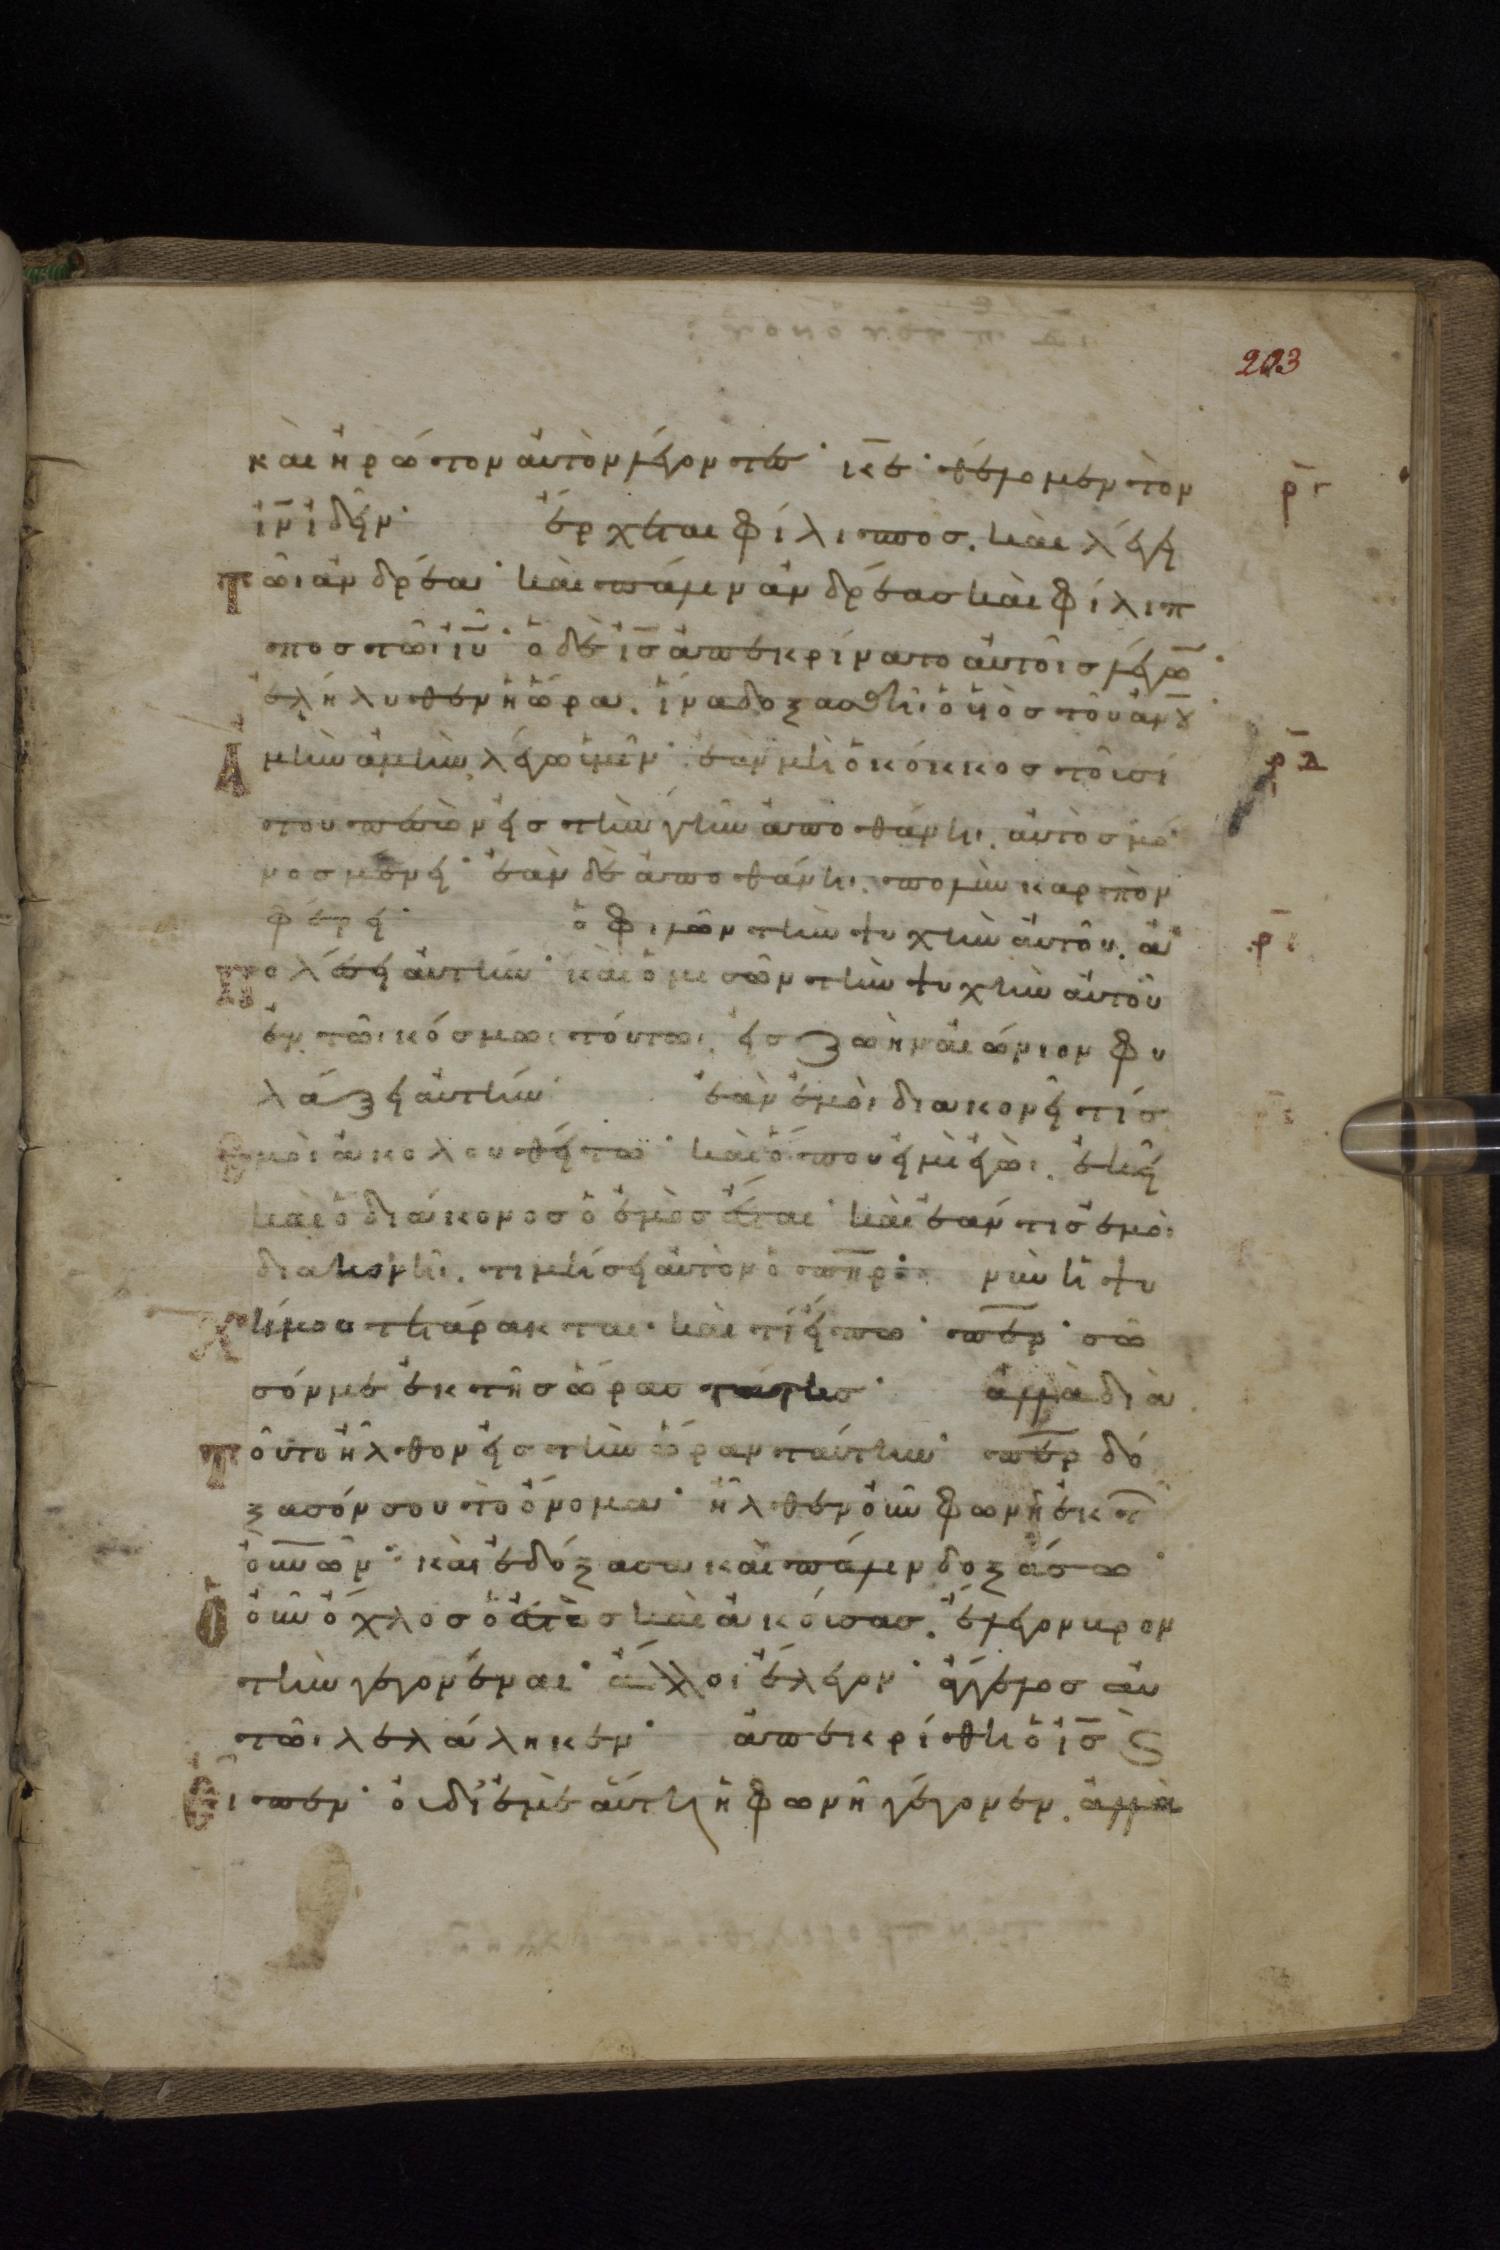 203
καὶ ἠρώτον αὐτὸν λέγοντες· κε· θέλομεν τὸν
ιν ἰδεῖν· ἔρχεται φίλιππος. καὶ λέγει
τῶι ἀνδρέαι· καὶ πάλιν ἀνδρέας καὶ φίλιπ
πος τῶι ιυ· ὁ δὲ ις ἀπεκρίνατο αὐτοῖς λέγω·
ἐλήλυθεν ἡ ὥρα. ἵνα δοξασθῆι ὁ υἱὸς τοῦ ἀνου·
Ἀμὴν ἀμὴν λέγω ὑμῖν· ἐὰν μὴ ὁ κόκκος τοῦ σί
του πεσὼν εἰς τὴν γῆν ἀποθάνηι. αὐτὸς μό
νος μένει· ἐὰν δὲ ἀποθάνηι. πολὺν καρπὸν
φέρει· ὁ φιλῶν τὴν ψυχὴν αὐτοῦ. ἀ
πολέσει αὐτήν· καὶ ὁ μισῶν τὴν ψυχὴν αὐτοῦ
ἐν τῶι κόσμωι τούτωι. εἰς ζωὴν αἰώνιον φυ
λάξει αὐτήν· ἐὰν ἐμοὶ διακονεῖ τίς
ἐμοὶ ἀκολουθείτω· καὶ ὅπου εἰμὶ ἐγὼι. ἐκεῖ
καὶ ὁ διάκονος ὁ ἐμὸς ἔσται· καὶ ἐάν τις ἐμοὶ
διακονῆι. τιμήσει αὐτὸν ὁ πηρ· νῦν ἡ ψυ
χή μου τετάρακται· καὶ τί εἴπω· περ· σῶ
σόν με ἐκ τῆς ὥρας ταύτης· ἀλλὰ διὰ
τοῦτο ἦλθον εἰς τὴν ὥραν ταύτην· περ δό
ξασόν σου τὸ ὄνομα· ἦλθεν οὖν φωνὴ ἐκ τ
οὐνῶν· καὶ ἐδόξασα καὶ πάλιν δοξάσω·
ὁ οὖν ὄχλος ὁ ἑστὼς καὶ ἀκούσας. ἔλεγον βρον
τὴν γεγονέναι· ἄλλοι ἔλεγον· ἄγγελος αὐ
τῶι λελάληκεν· ἀπεκρίθη ὁ ις καὶ
εἶπεν· οὐ δι' ἐμὲ αὕτη ἡ φωνὴ γέγονεν. ἀλλὰ
ργ
ρδ
ρε
ρς